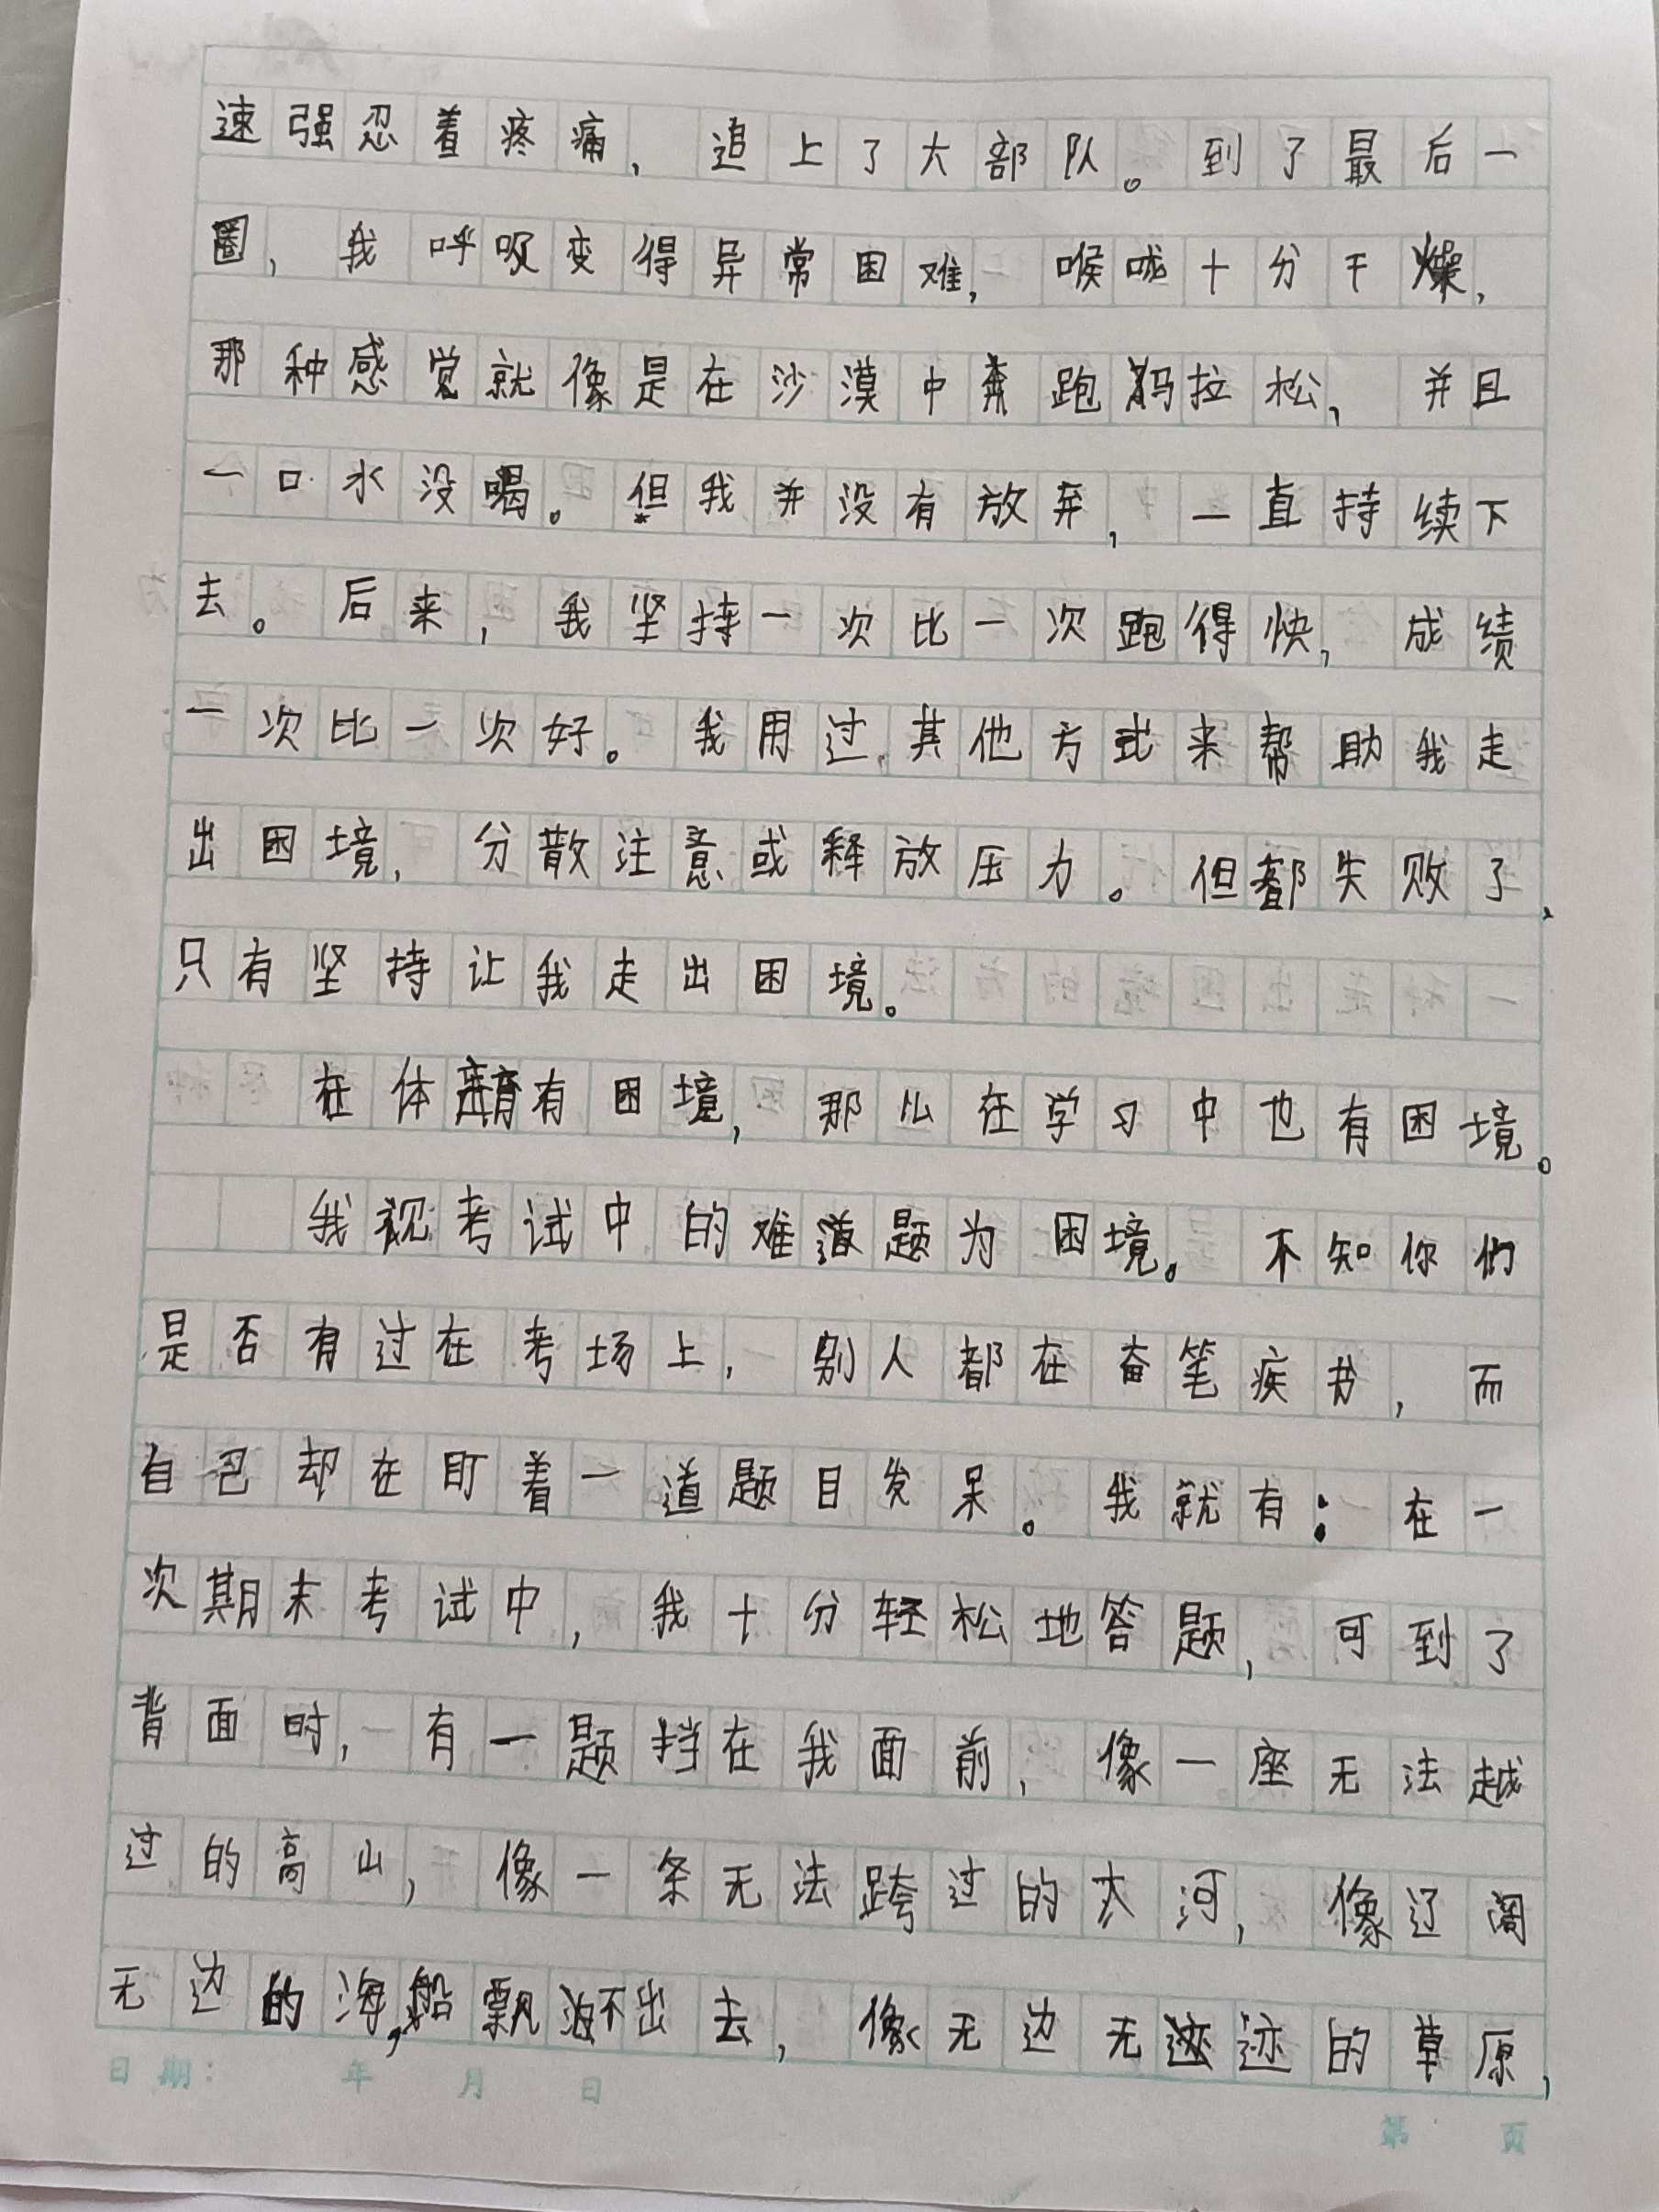 速强忍着疼痛，追上了大部队。到了最后一
圈，我呼吸变得异常困难，喉咙十分干燥，
那种感觉就像是在沙漠中奔跑马拉松，并且
一口水没喝。但我并没有放弃，一直持续下
去。后来，我坚持一次比一次跑得快，成绩
一次比一次好。我用过其他方式来帮助我走
出困境，分散注意或释放压力。但都失败了，
只有坚持让我走出困境。
在体育有困境，那么在学习中也有困境。
我视考试中的难题为困境。不知你们
是否有过在考场上，别人都在奋笔疾书，而
自己却在盯着一道题目发呆。我就有：在一
次期末考试中，我十分轻松地答题，可到了
背面时，有一题挡在我面前，像一座无法越
过的高山，像一条无法跨过的大河，像辽阔
无边的海，船飘不出去，像无边无迹的草原，
日期： 年 月 日
第 页